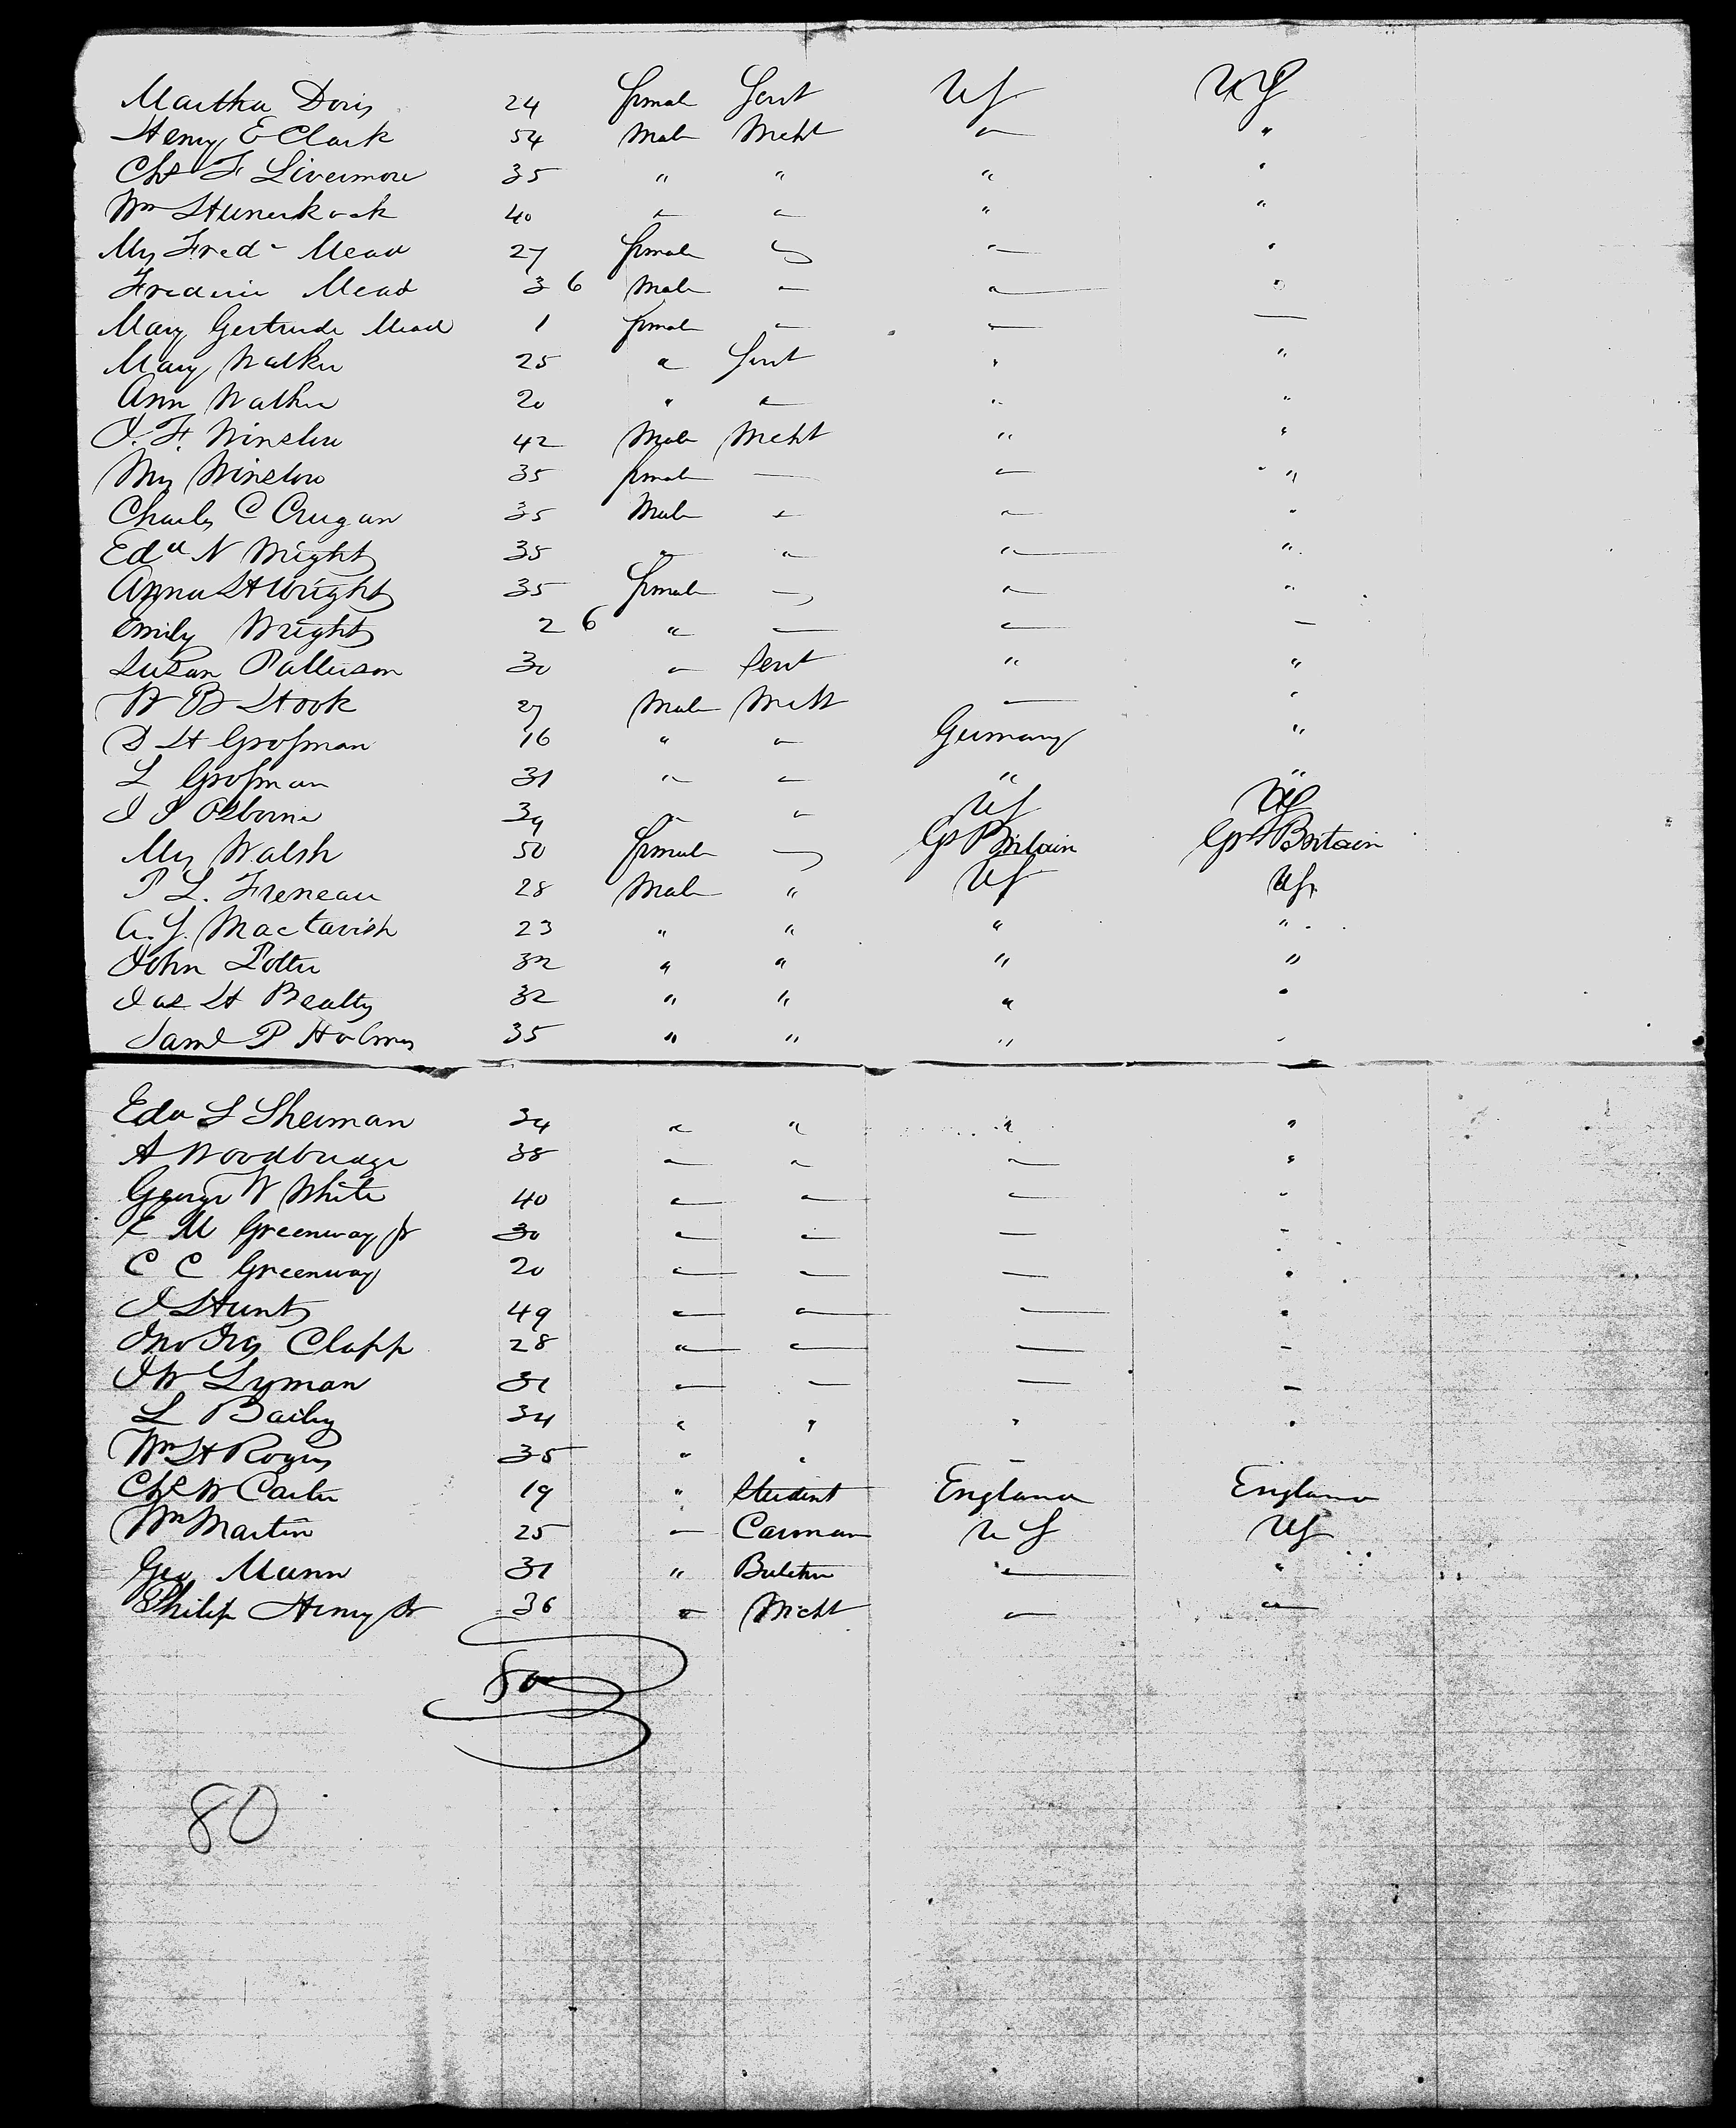 Martha Doris 24 female Servt US US
Henry E Clark 54 Male Mcht " "
Chs F Livermore 35 " " " "
Wm 40 " " " "
Mrs Fred Mead 27 female " "
Frederic Mead 3 6 Male " " "
Mary Gertrude Mead 1 female " " "
Mary Walker 25 " Servt " "
Ann Walker 20 " " " "
J. F. Winslow 42 Male Mcht " "
Mrs Winslow 35 female — " "
Charles C Crugan 35 Male " " "
Edd N Wright 35 " " " "
Anna H Wright 35 female " "
Emily Wright 2 6 " — " —
Susan Patterson 30 " Servt " "
W B Hook 27 Male Mcht — "
D H Grosman 16 " " Germany "
L Grosman 31 " " " "
J J Osborne 39 " " US US
Mrs Walsh 50 female Gt Britain Gt Britain
P L. Freneau 28 Male " US US
A. J. Mactavish 23 " " " "
John Potter 32 " " " "
Jas H Beatty 32 " " " "
Saml P Holmes 35 " " " "
Edd S Sherman 34 " " " "
A Woodbridge 38 " " " "
George W White 40 " " " "
E M Greenway Jr 30 " " — "
C C Greenway 20 " " — "
J Hunt 49 " " " "
Jno Clapp 28 " " — "
J W Lyman 31 " — — —
L Baily 34 " " " "
Wm H Rogers 35 " " — —
Chs W Carter 19 " Student England England
Wm Martin 25 " Carman US US
Geo Munn 31 " Butcher " "
Philip Henry Jr 36 " Mcht " "
80
80